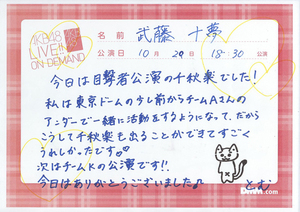 AKB48
LIVE!!
ON DEMAND
名前 武藤 十夢
公演日 10月29日 18:30公演
今日は目撃者公演の千秋楽でした!
私は東京ドームの少し前からチームAさんの
アンダーで一緒に活動をするようになって、だから
こうして千秋楽も出ることができてすごく
うれしかったです♡
次はチームKの公演です!!
今日はありがとうございました♪
とむ
DMM.com